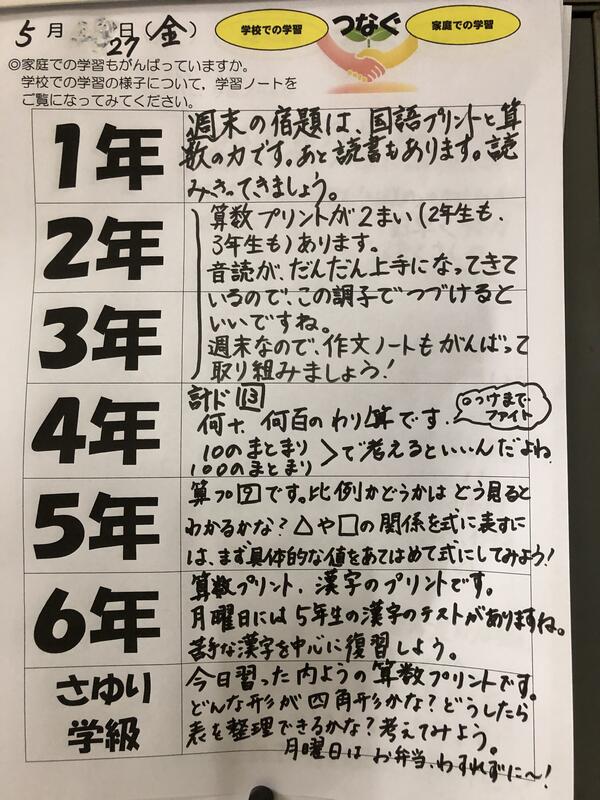 5月27日(金)
学校での学習
つなぐ
家庭での学習
◎家庭での学習もがんばっていますか。
学校での学習の様子について，学習ノートを
ご覧になってみてください。
1年
週末の宿題は、国語プリントと算
数の力です。あと読書もあります。読
みきってきましょう。
2年
3年
算数プリントが2まい(2年生も、
3年生も)あります。
音読が、だんだん上手になってきて
いるので、この調子でつづけると
いいですね。
週末なので、作文ノートもがんばって
取り組みましょう!
4年
計ド13
○つけまで
ファイト
何十、何百のわり算です.
10のまとまり
100のまとまり
で考えるといいんだよね.
5年
算プ9です。比例かどうかはどう見ると
わかるかな?△や□の関係を式に表すに
は、まず具体的な値をあてはめて式にしてみよう!
6年
算数プリント、漢字のプリントです。
月曜日には5年生の漢字のテストがありますね。
苦手な漢字を中心に復習しよう。
さゆり
学級
今日習った内ようの算数プリントです。
どんな形が四角形かな?どうしたら
表を整理できるかな?考えてみよう。
月曜日はお弁当、わすれずに〜!